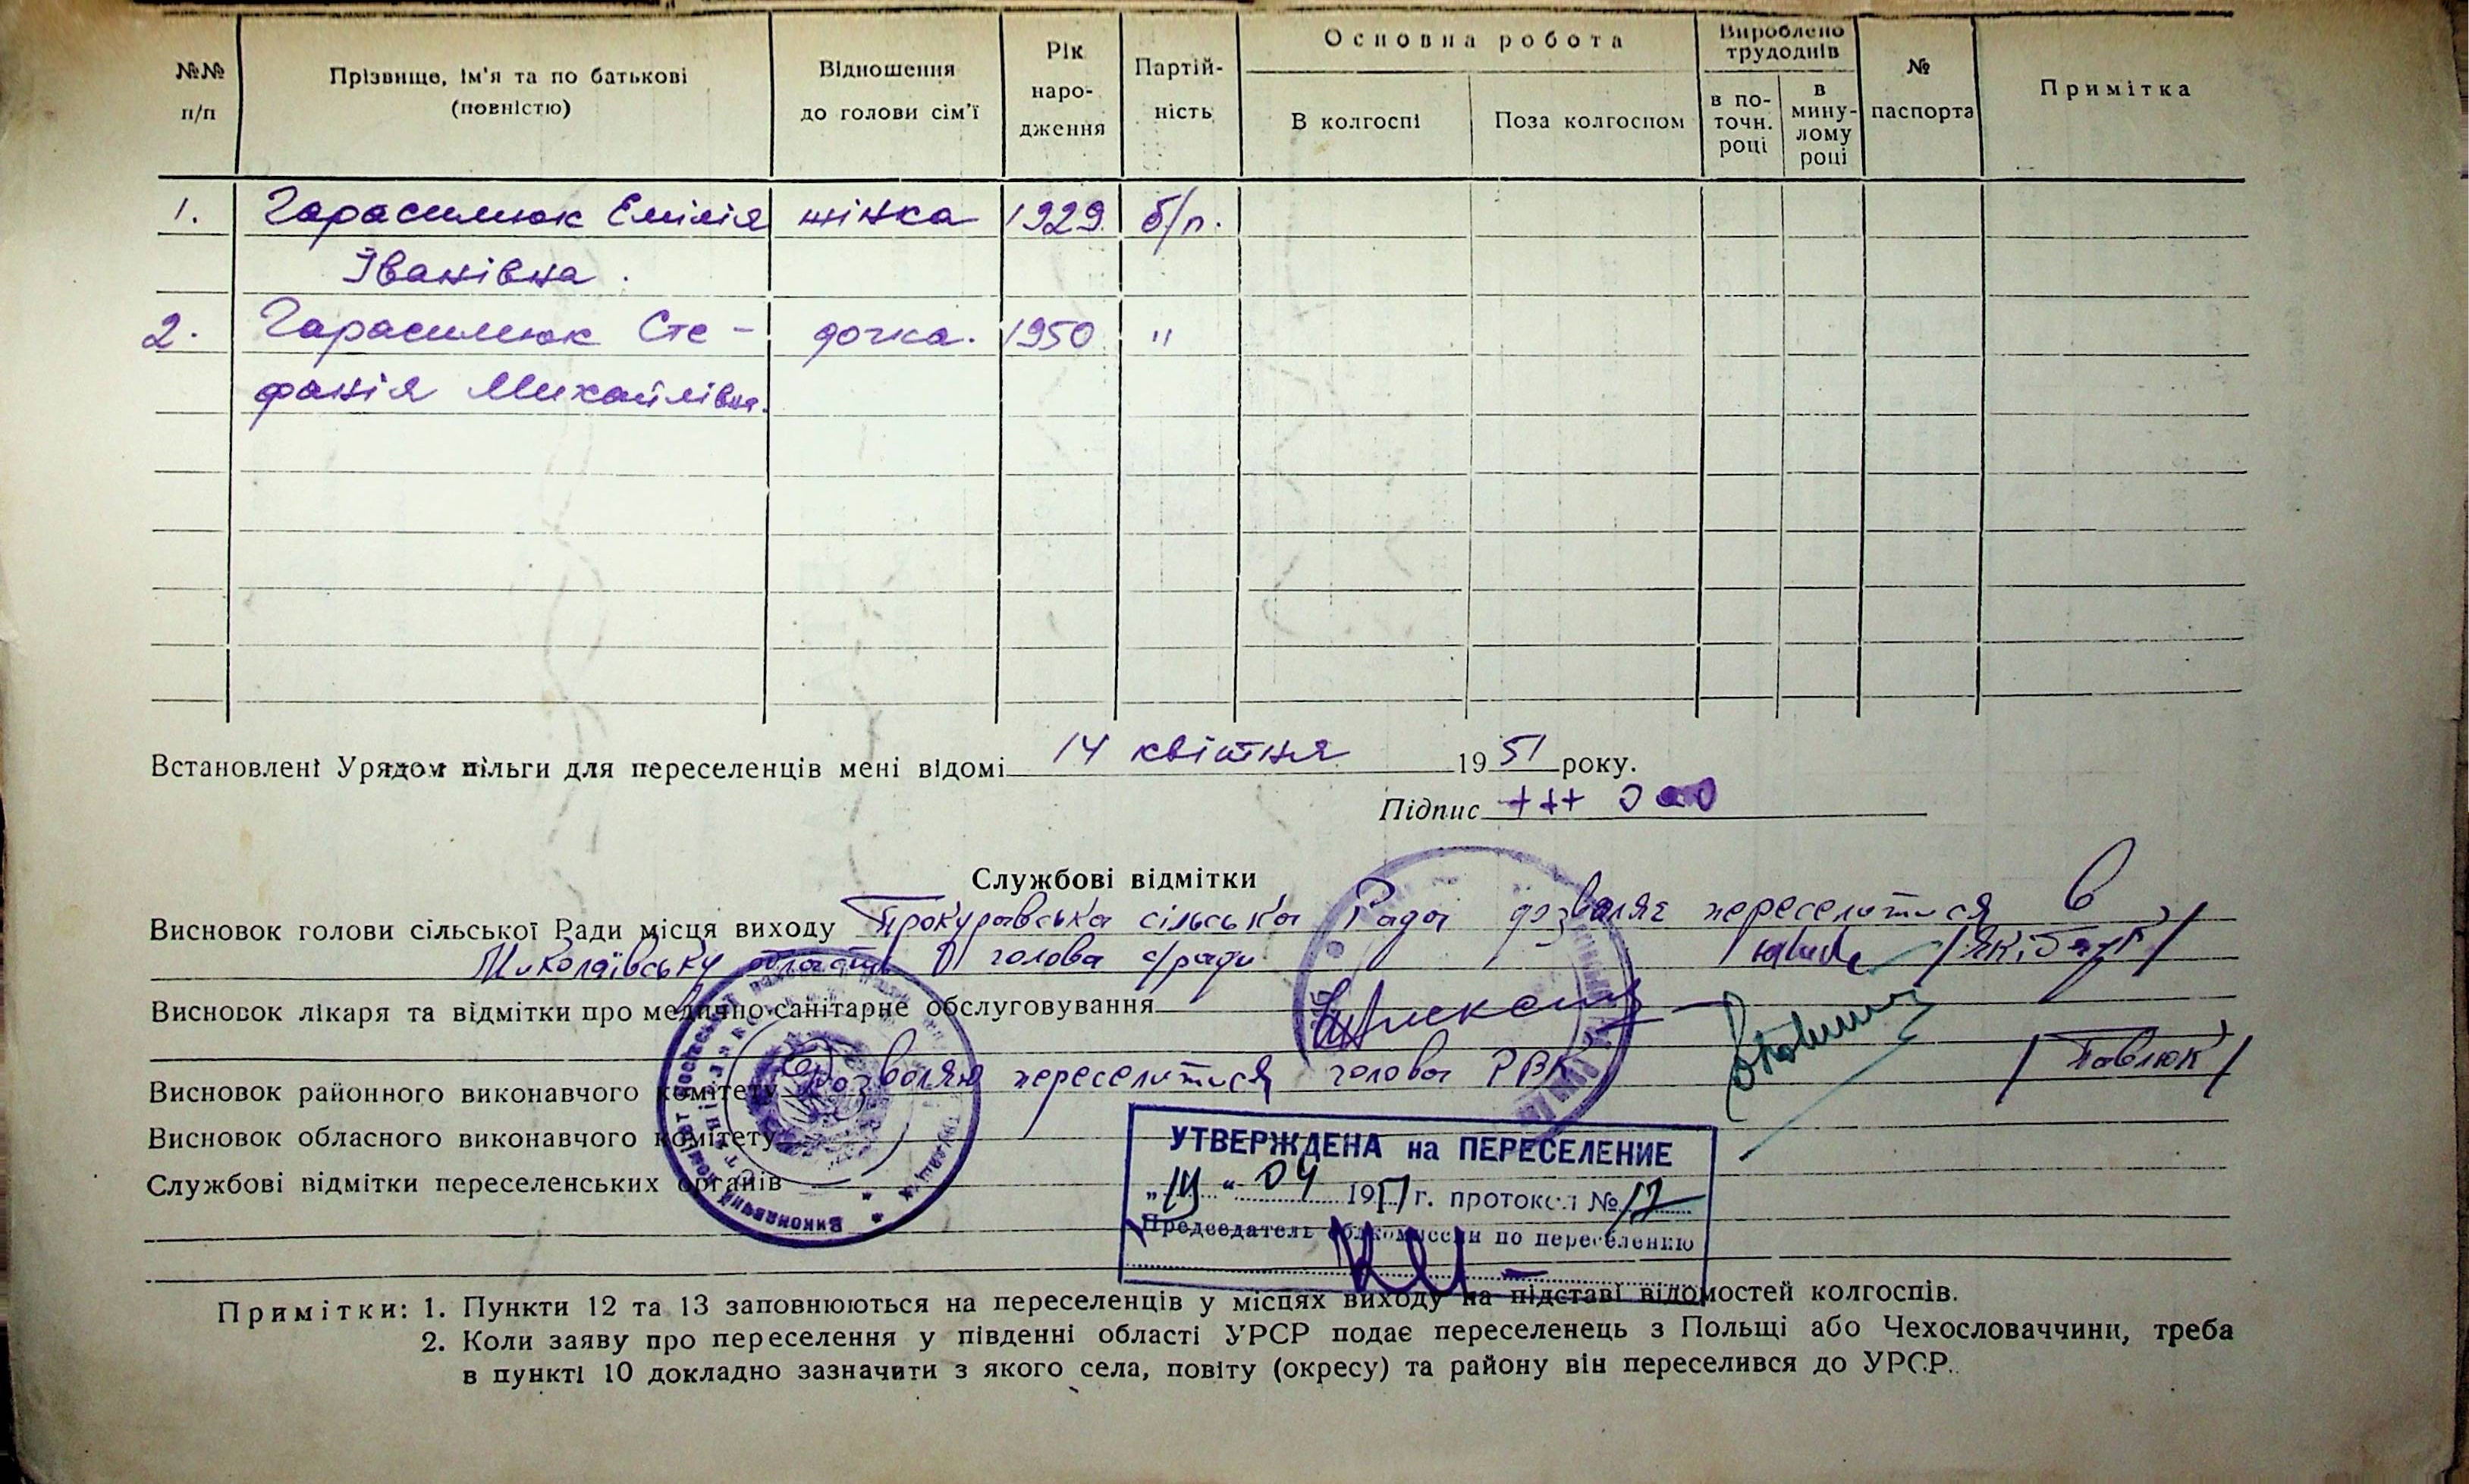 №№ п/п
Прізвище, ім'я та по батькові (повністю)
Відношення до голови сім'ї
Рік народження
Партій-ність
Основна робота
В колгоспі
Поза колгоспом
Вироблено трудоднів
в по-точн. році
в мину-лому році
№ паспорта
Примітка
1. Гарасимюк Емілія жінка 1929 б/п.
Іванівна.
2. Гарасимюк Сте- дочка. 1950 "
фанія Михайлівна.
Встановлені Урядом пільги для переселенців мені відомі 14 квітня 1951 року.
Підпис +++
Службові відмітки
Висновок голови сільської Ради місця виходу Прокуравська сільська Рада дозволяє переселитися в
Миколаївську область голова с/ради
Висновок лікаря та відмітки про медично-санітарне обслуговування
Висновок районного виконавчого комітету Дозволяю переселитися голова РВК /Павлюк/
Висновок обласного виконавчого комітету
Службові відмітки переселенських органів
УТВЕРЖДЕНА на ПЕРЕСЕЛЕНИЕ
"14" 04 1951 г. протокол № 12
Председатель облкомиссии по переселению
Примітки: 1. Пункти 12 та 13 заповнюються на переселенців у місцях виходу на підставі відомостей колгоспів.
2. Коли заяву про переселення у південні області УРСР подає переселенець з Польщі або Чехословаччини, треба
в пункті 10 докладно зазначити з якого села, повіту (окресу) та району він переселився до УРСР.